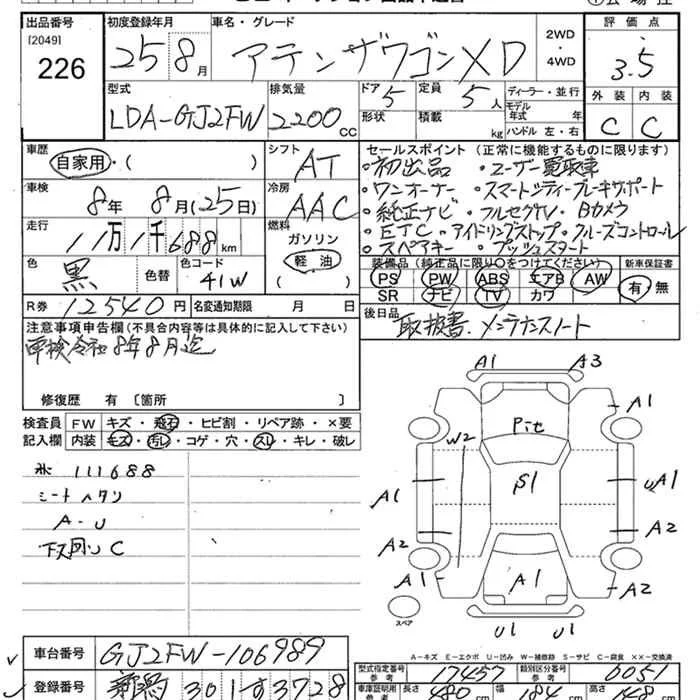 出品番号 初度登録年月 車名・グレード 2WD・4WD 評価点
[2049]
226 25 8月 アテンザワゴン XD 3.5
型式 排気量 ドア 5 定員 5人 ディーラー・並行 外装 内装
LDA-GJ2FW 2200cc 形状 積載 kg モデル年式 年 ハンドル 左・右 C C
車歴 シフト セールスポイント (正常に機能するものに限ります)
自家用・( ) AT ・初出品 ・ユーザー買取車
車検 冷房 ・ワンオーナー ・スマートシティーブレーキサポート
8年 8月(25日) AAC ・純正ナビ ・フルセグTV ・Bカメラ
走行 燃料 ・ETC ・アイドリングストップ ・クルーズコントロール
11万1千688km ガソリン ・スペアキー ・プッシュスタート
色 色替 色コード 軽油 装備品(純正品に限り○をつけてください) 新車保証書
黒 41W ( ) PS PW ABS エアB AW 有・無
SR ナビ TV カワ
R券 12540円 名変通知期限 月 日 後日品
取扱書、メンテナンスノート
注意事項申告欄(不具合内容等は具体的に記入して下さい)
車検令和8年8月迄
修復歴 有 〔箇所 〕
検査員記入欄 FW キズ・飛石・ヒビ割・リペア跡・×要
内装 キズ・汚レ・コゲ・穴・スレ・キレ・破レ
111688
シートヘタリ
A-U
下回り C
A1 A3
A1
Pit
W2
A1 S1 uA1
A2 A2
A1 A1 A2
スペア
U1 U1
A-キズ E-エクボ U-凹み W-補修跡 S-サビ C-腐食 XX-交換済
車台番号 GJ2FW-106989
型式指定番号 参考 17457 類別区分番号 参考 0051
登録番号 新潟 301 す 3728
車庫証明用 参考 長さ 480cm 幅 184cm 高さ 148